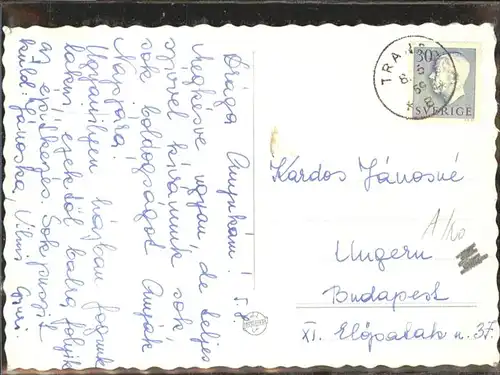 Drága Anyukám!
Megkésve ugyan, de teljes
szívvel kívánunk sok
sok boldogságot Anyák
Napjára.
Ugyanilyen házban fogunk
lakni, ezektől balra folyik
az építkezés. Sok puszit
küld: Jánoska, Vilmos, Gyuri.
SVERIGE
30
TRA
Kardos Jánosné
Ungern
Budapest
XI. Előpatak u. 37.